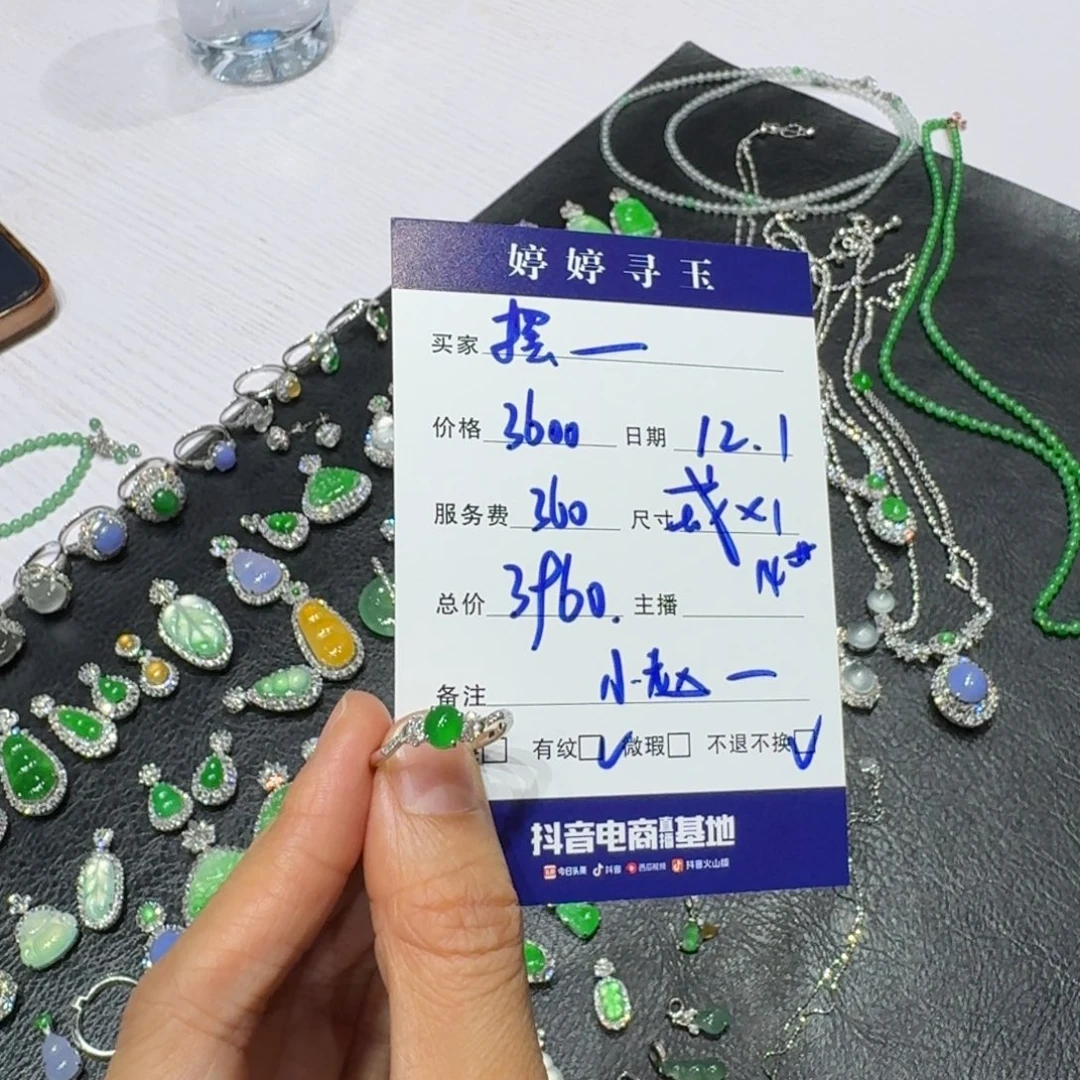 婷婷寻玉
买家 摆一
价格 3600 日期 12.1
服务费 360 尺寸 戒×1
14#
总价 3960. 主播
备注 小赵一
有纹 微瑕 不退不换
抖音电商直播基地
今日头条 抖音 西瓜视频 抖音火山版